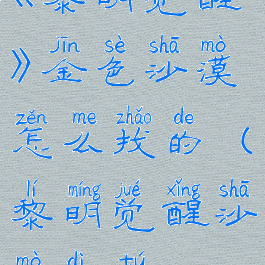 《黎明觉醒
jīn sè shā mò
》金色沙漠
zěn me zhǎo de
怎么找的（
lí míng jué xǐng shā
黎明觉醒沙
mò dì tú